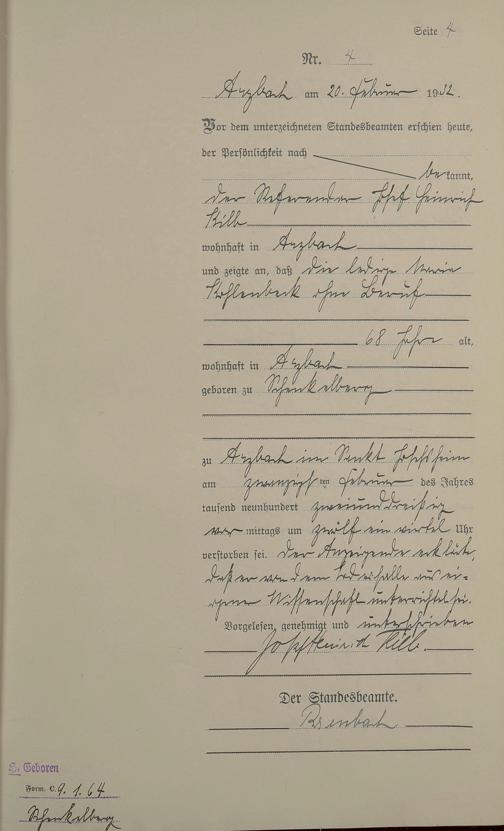 Seite 4
Nr. 4
Arzbach am 20. Februar 1932.
Vor dem unterzeichneten Standesbeamten erschien heute,
der Persönlichkeit nach
bekannt,
der Referendar Josef Heinrich
Kilb
wohnhaft in Arzbach
und zeigte an, daß die ledige Maria
Kohlenbeck ohne Beruf
68 Jahre alt,
wohnhaft in Arzbach
geboren zu Schenkelberg
zu Arzbach im Sankt Josefsheim
am zwanzigsten Februar des Jahres
tausend neunhundert zweiunddreißig
vormittags um zwölf ein viertel Uhr
verstorben sei. Der Anzeigende erklärte,
daß er von dem Todesfalle aus ei-
gener Wissenschaft unterrichtet sei.
Vorgelesen, genehmigt und unterschrieben
Josef Heinrich Kilb.
Der Standesbeamte.
Geboren
Form. C. 9. 1. 64
Schenkelberg